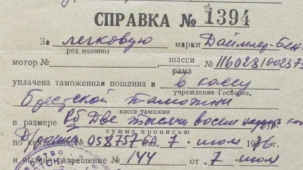 СПРАВКА № 1394
За легковую марки Даймлер-Бен
род машины
мотор № шасси № 116023100237
рама
уплачена таможенная пошлина в кассу
учреждения Госбанка,
Брестской таможни
касса таможни
в размере Рб Две тысячи восем
сумма прописью
по 058757 7 июл
разрешение № 144 от 7 июл